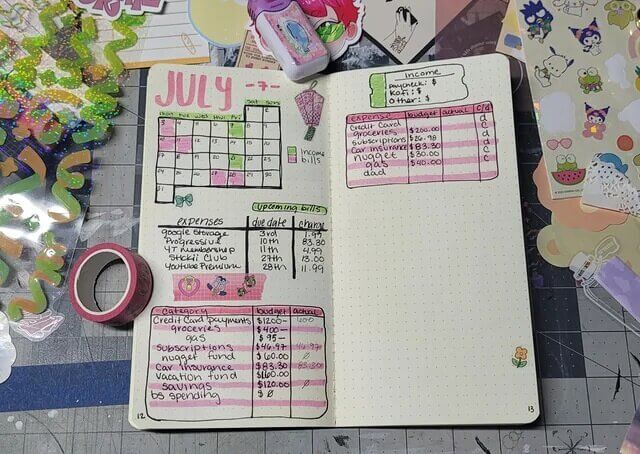 JULY -7-
Sat Sun
Mon Tue Wed Thu Fri
31
Income
bills
upcoming bills
expenses due date charge
google storage 3rd 1.99
Progressive 10th 83.30
YT membership 11th 4.99
Stickii Club 27th 13.00
Youtube Premium 28th 11.99
Category budget actual
Credit Card payments $1200- 600
groceries $400-
gas $95-
subscriptions $46.97 46.97
nugget fund $60.00 Ø
Car Insurance $83.30 83.30
Vacation fund $160.00
savings $120.00 Ø
bs spending $ Ø
12
income
Paycheck: $
Kofi: $
Other: $
expense budget actual c/d
Credit Card d
groceries $200.00 c
subscriptions $26.98 d
Car insurance $83.30 d
nugget $30.00
gas $40.00
dad
13